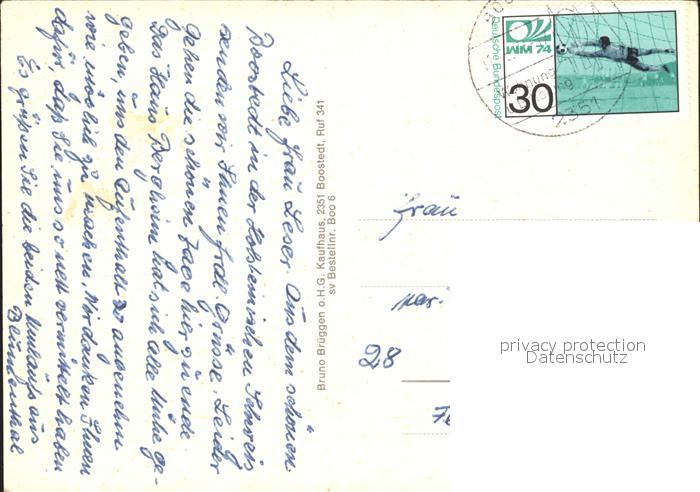 Liebe Frau Leser. Aus dem schönen
Boostedt in der Holsteinischen Schweiz
senden wir Ihnen frdl. Grüsse. Leider
gehen die schönen Tage hier zu ende
Das Haus Bergheim hat sich alle Mühe ge-
geben, uns den Aufenthalt so angenehm
wie möglich zu machen. Wir danken Ihnen
dafür, daß Sie uns so nett vermittelt haben
Es grüßen Sie die beiden aus
Bruno Brüggen o.H.G. Kaufhaus, 2351 Boostedt, Ruf 341
sv Bestellnr. Boo 6
Deutsche Bundespost
WM 74
30
2351
Frau
28
privacy protection
Datenschutz